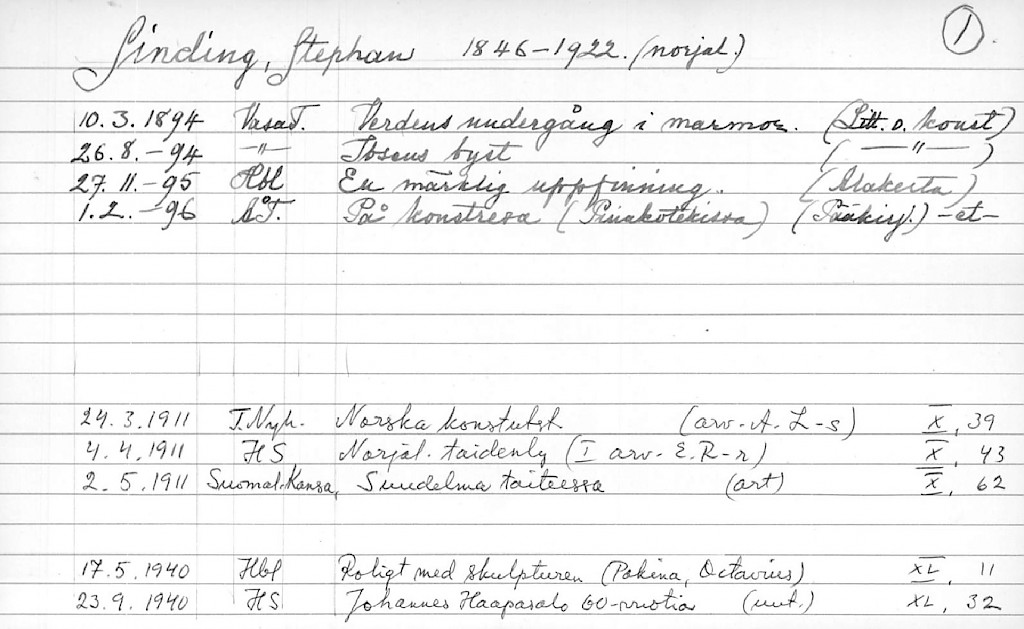 ①
Sinding, Stephan 1846–1922. (norjal.)
10.3.1894 VasaT. Verdens undergång i marmor. (Litt. o. konst)
26.8.–94 –"– Ibsens byst ( –"– )
27.11.–95 Hbl En märklig uppfinning. (Alakerta)
1.2.–96 ÅT. På konstresa (Pinakotekissa) (Pääkirj.) –et–
24.3.1911 T.Nyh. Norska konstutst (arv. A. L–s) X, 39
4.4.1911 HS Norjal. taidenly (I arv. E. R–r) X, 43
2.5.1911 Suomal.Kansa, Suudelma taiteessa (art) X, 62
17.5.1940 Hbl Roligt med skulpturen (Pakina, Octavius) XL, 11
23.9.1940 HS Johannes Haapasalo 60-vuotias (uut.) XL, 32